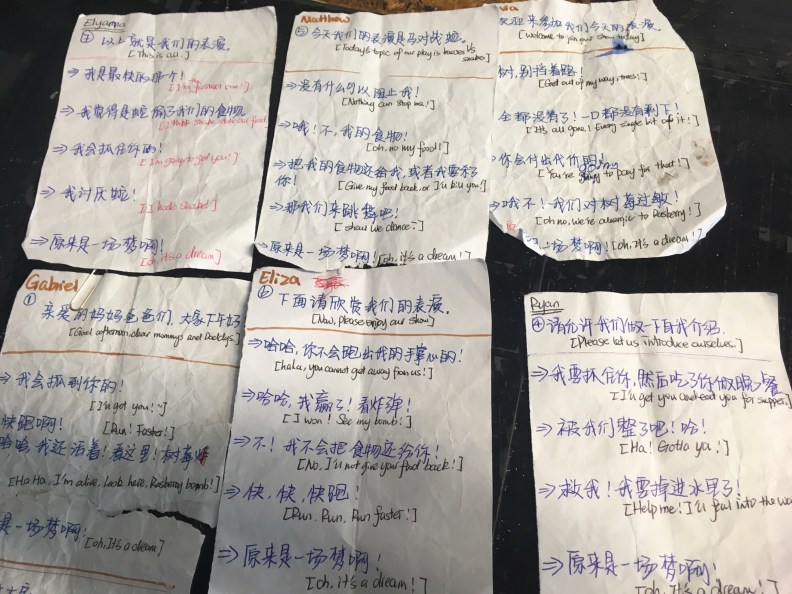 Elyanna
⑦ 以上就是我们的表演。
[This is all.]
⇒ 我是最快的那个!
⇒ 我觉得是蛇偷了我们的食物
⇒ 我会抓住你的!
[I'm going to get you!]
⇒ 我讨厌蛇!
⇒ 原来是一场梦啊!
[oh, it's a dream!]
Matthew
⑤ 今天我们的表演是马对战蛇。
[Today's topic of our play is horses vs
snakes]
⇒ 没有什么可以阻止我!
[Nothing can stop me!]
⇒ 哦!不,我的食物!
[oh, no my food!]
⇒ 把我的食物还给我,或者我要杀了
你!
[Give my food back, or I'll kill you!]
⇒ 那我们来跳舞吧!
[shall we dance?]
⇒ 原来是一场梦啊! [oh, it's a dream!]
欢迎来参加我们今天的表演。
[Welcome to join our show today]
树,别挡着路!
[Get out of my way, trees!]
全都没有了!一口都没有剩下!
[It's all gone! Every single bit of it!]
你会付出代价的!
[You're going to pay for that!]
⇒ 哦不!我们对树莓过敏!
[oh no, we're allergic to Rasberry!]
一场梦啊! [oh, it's a dream!]
Gabriel
① 亲爱的妈妈爸爸们,大家下午好
[Good afternoon, dear mommys and Daddys.]
⇒ 我会抓到你的!
[I'll get you!]
快跑啊!
[Run! Faster!]
哈哈 我还活着!看这里!树莓
[Ha Ha, I'm alive, Look here, Rasberry bomb!]
是一场梦啊!
[oh, It's a dream]
Eliza
⑥ 下面请欣赏我们的表演。
[Now, please enjoy our show]
⇒ 哈哈,你不会跑出我的手掌心的!
[haha, you cannot get away from us!]
⇒ 哈哈,我赢了!看炸弹!
[I won! See my bomb!]
⇒ 不!我不会把食物还给你!
[No, I'll not give you food back!]
⇒ 快,快,快跑!
[Run, Run, Run faster!]
⇒ 原来是一场梦啊!
[oh, it's a dream!]
Ryan
④ 请允许我们做一下自我介绍.
[Please let us introduce ourselves.]
⇒ 我要抓住你,然后吃了你做晚餐
[I'll get you and eat you for supper.]
⇒ 被我们整了吧!哈!
[Ha! Gotta ya!]
⇒ 救我!我要掉进水里了!
[Help me! I'll fall into the wa
⇒ 原来是一场梦啊!
[oh, It's a dream!]